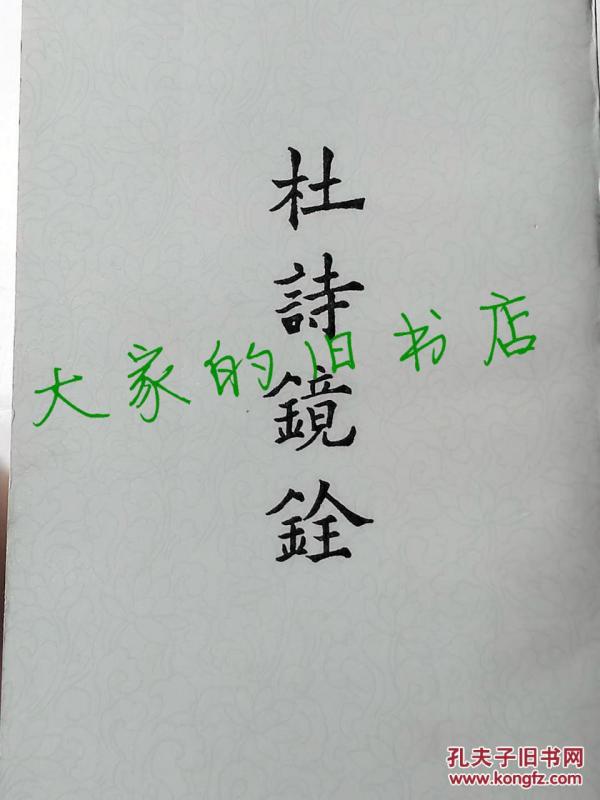 杜詩鏡銓
大家的旧书店
孔夫子旧书网
www.kongfz.com